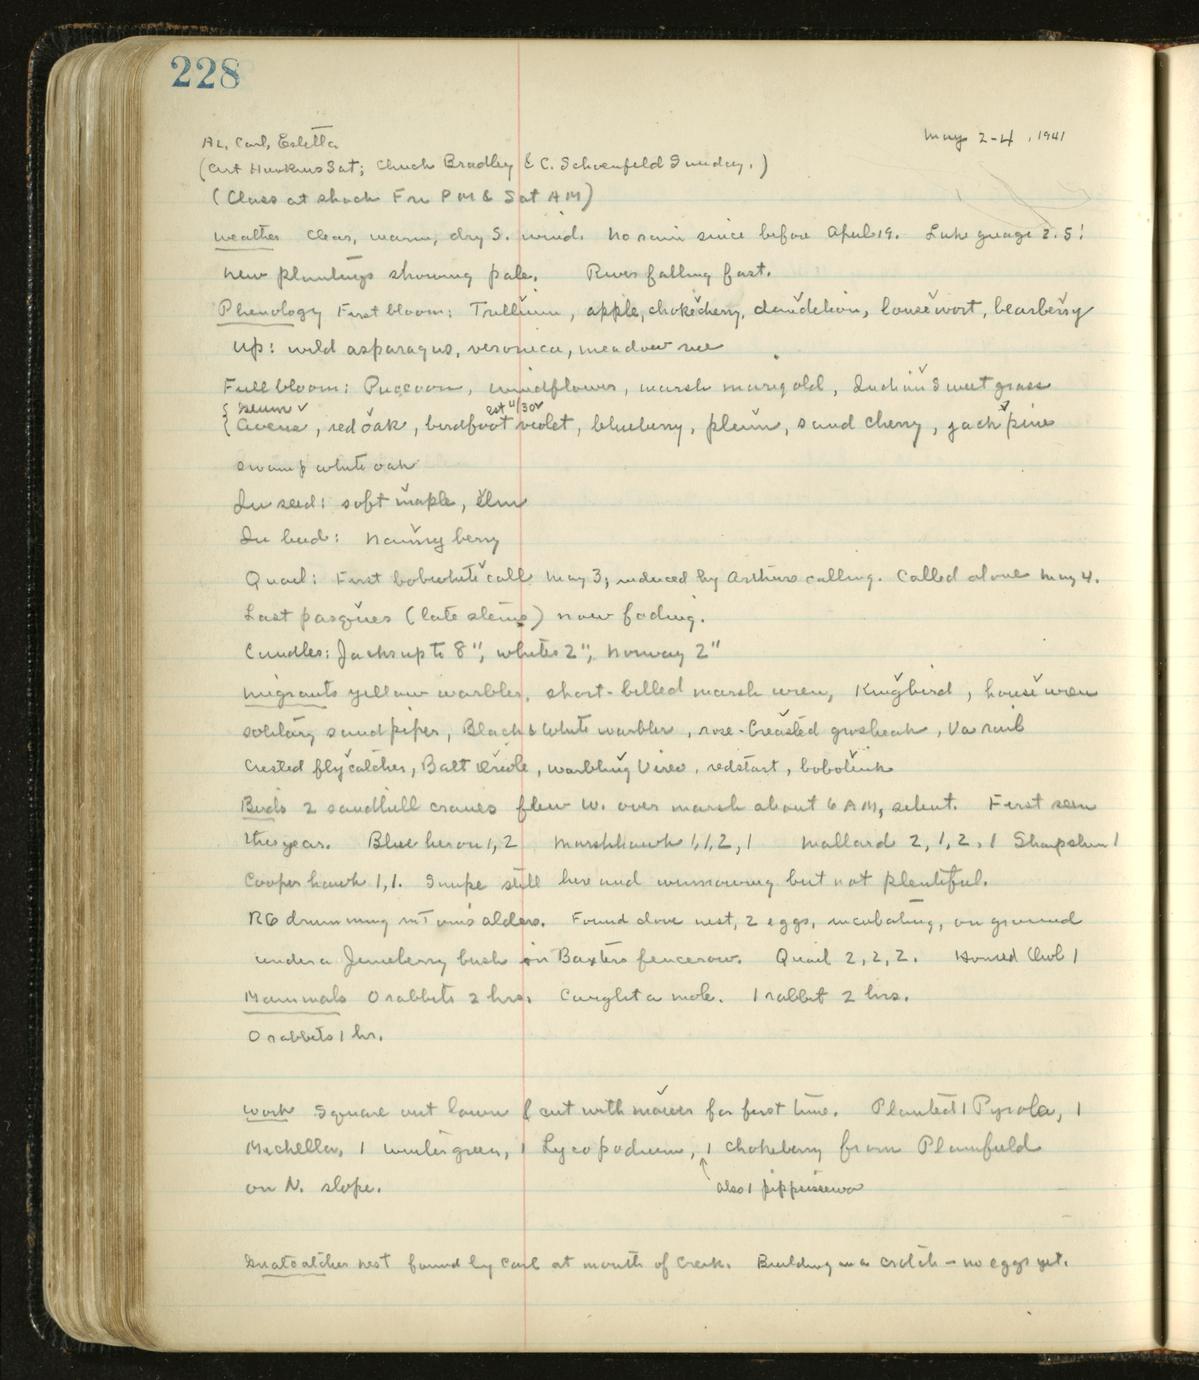 228
May 2-4, 1941
AL, Carl, Estella
(Art Hawkins Sat; Chuck Bradley & C. Schoenfeld Sunday.)
(Class at shack Fri PM & Sat AM)
Weather Clear, warm, dry S. wind. No rain since before April 19. Lake guage 2.5!
New plantings showing pale. River falling fast.
Phenology First bloom: Trillium, apple, chokecherry, dandelion, lousewort, bearberry
Up: wild asparagus, veronica, meadow rue
Full bloom: Puccoon, windflower, marsh marigold, Indian Sweet grass
{ Geum est 4/30
{ Avens, red oak, birdfoot violet, blueberry, plum, sand cherry, jack pine
swamp white oak
In seed: soft maple, elm
In bud: Nannyberry
Quail: First bobwhite call May 3; induced by Arthurs calling. Called alone May 4.
Last pasques (late stems) now fading.
Candles: Jacks up to 8", whites 2", Norway 2"
Migrants yellow warbler, short-billed marsh wren, Kingbird, house wren
solitary sandpiper, Black & White warbler, rose-breasted grosbeak, Va rail
Crested flycatcher, Balt oriole, warbling Vireo, redstart, bobolink
Birds 2 sandhill cranes flew W. over marsh about 6 AM, silent. First seen
this year. Blue heron 1, 2 Marshhawk 1,1,2,1 Mallard 2, 1, 2, 1 Sharpshin 1
Cooper hawk 1,1. Snipe still here and winnowing but not plentiful.
RG drumming in Toms alders. Found dove nest, 2 eggs, incubating, on ground
under a Juneberry bush in Baxters fencerow. Quail 2, 2, 2. Horned Owl 1
Mammals 0 rabbits 2 hrs. Caught a mole. 1 rabbit 2 hrs.
0 rabbits 1 hr.
Work Square out lawn & cut with mower for first time. Planted 1 Pyrola, 1
Mitchella, 1 wintergreen, 1 Lycopodium, 1 chokeberry from Plainfield
on N. slope. also 1 pippsissewa
Gnatcatcher nest found by Carl at mouth of Creek. Building in a crotch - no eggs yet.